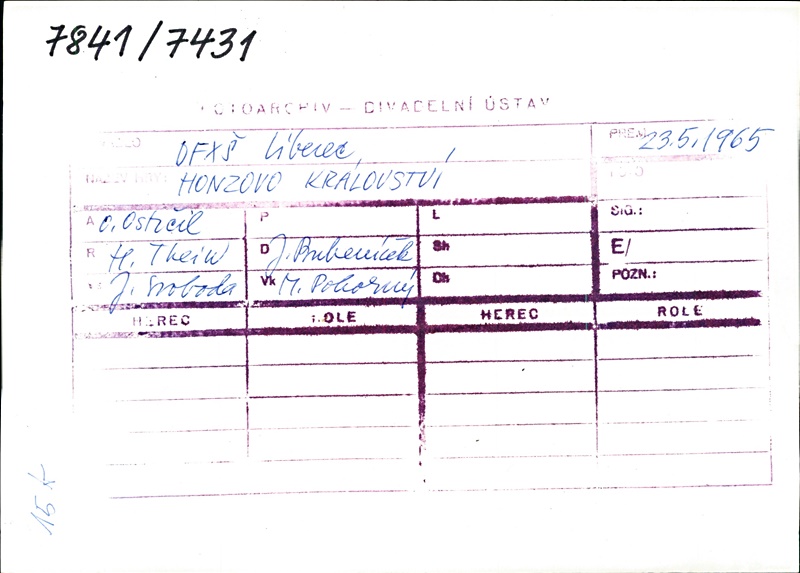 7841/7431
FOTOARCHIV – DIVADELNÍ ÚSTAV
DFXŠ Liberec,
PREM. 23.5.1965
HONZOVO KRÁLOVSTVÍ
A O. Ostrčil P L SIG.:
R H. Thein D J. Bubeníček Sh E/
J. Svoboda Vk M. Pokorný Ch POZN.:
HEREC ROLE HEREC ROLE
15x